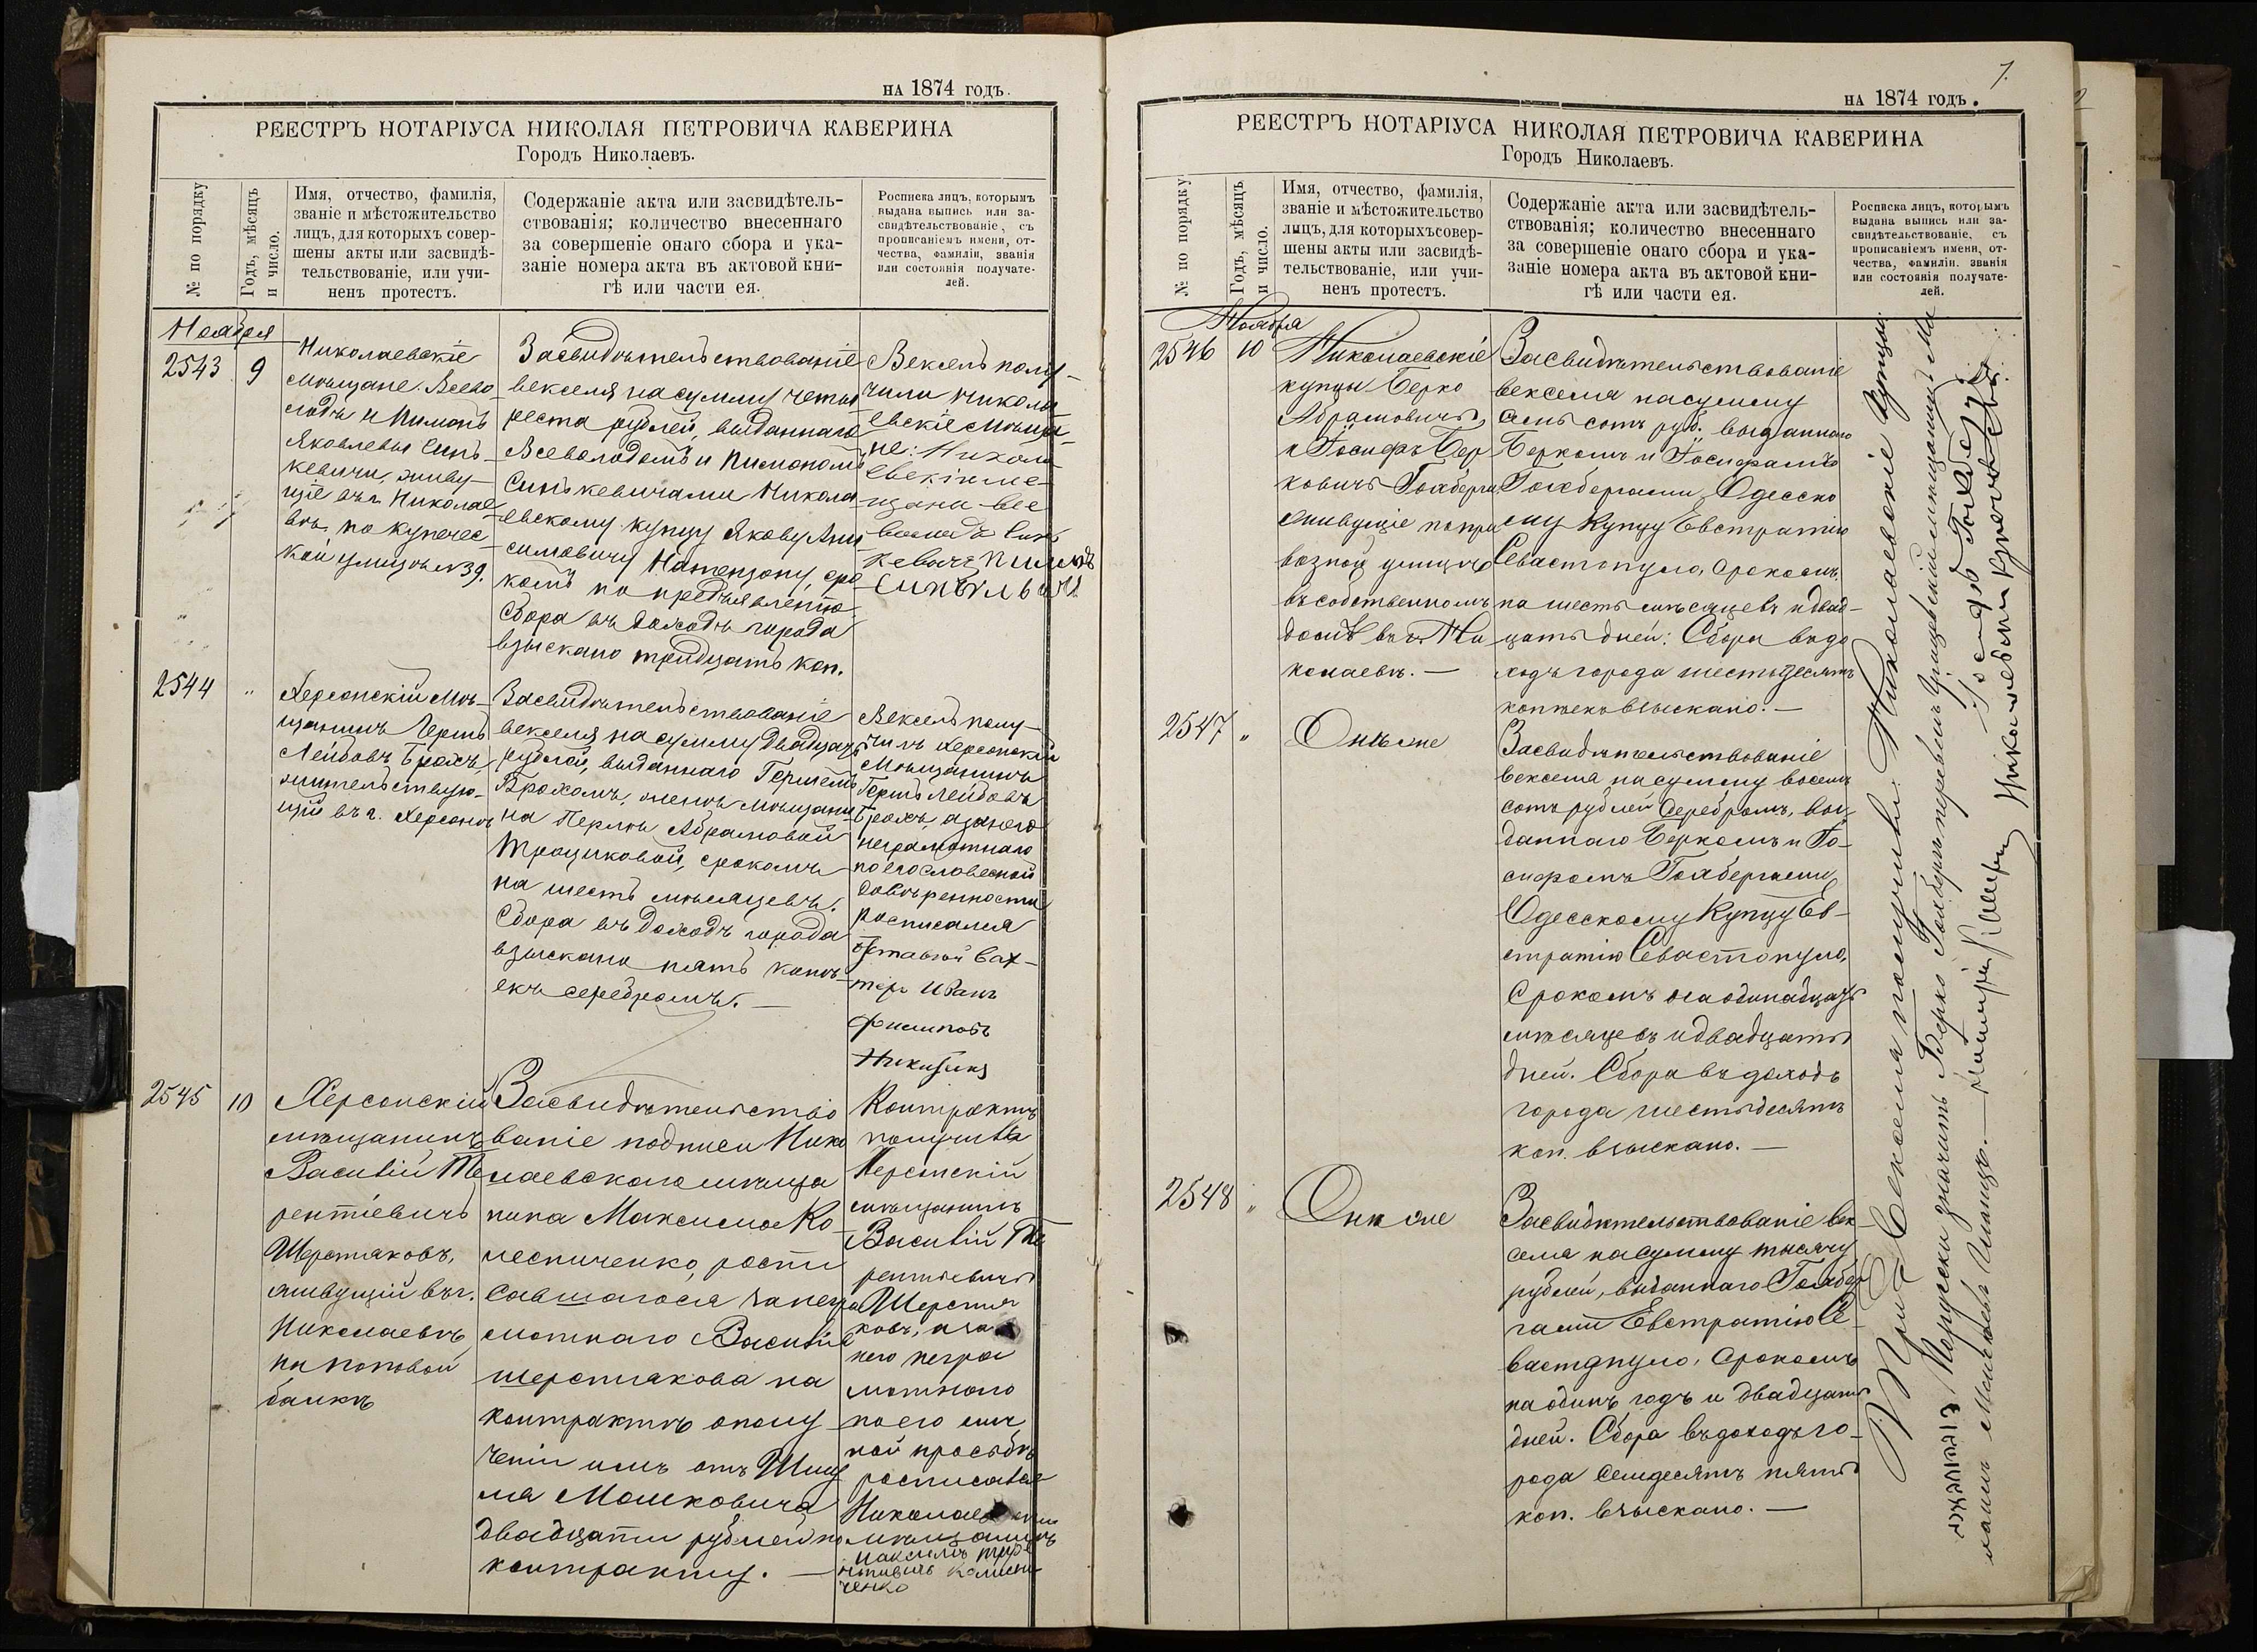 НА 1874 ГОДЪ.
РЕЕСТРЪ НОТАРІУСА НИКОЛАЯ ПЕТРОВИЧА КАВЕРИНА
Городъ Николаевъ.
№ по порядку
Годъ, мѣсяцъ
и число.
Имя, отчество, фамилія,
званіе и мѣстожительство
лицъ, для которыхъ совер-
шены акты или засвидѣ-
тельствованіе, или учи-
ненъ протестъ.
Содержаніе акта или засвидѣтель-
ствованія; количество внесеннаго
за совершеніе онаго сбора и ука-
заніе номера акта въ актовой кни-
гѣ или части ея.
Росписка лицъ, которымъ
выдана выпись или за-
свидѣтельствованіе, съ
прописаніемъ имени, от-
чества, фамиліи, званія
или состоянія получате-
лей.
Ноября
2543
9
Николаевскіе
мѣщане Всево
лодъ и Пимонъ
Яковлевы Синь-
кевичи, живу-
щіе въ г. Николае
вѣ, по купечес-
кой улицѣ №39.
Засвидѣтельствованіе
векселя на сумму четы
реста рублей, выданнаго
Всеволодомъ и Пимономъ
Синькевичами Никола
евскому купцу Якову
симовичу сро
комъ по предъявленію
Сбора въ доходъ города
взыскано тридцать коп.
Вексель полу-
чили Никола
евскіе мѣща-
не:
2544
"
Херсонскій мѣ-
щанинъ Гершъ
Лейбовъ Брохъ,
жительствую-
щій въ г. Херсонѣ
Засвидѣтельствованіе
векселя на сумму двадцать
рублей, выданнаго Гершемъ
Брохомъ, женѣ мѣщани
на Перлѣ Абрамовой
Троциковой, срокомъ
на шесть мѣсяцевъ.
Сбора въ доходъ города
взыскано пять копѣ-
екъ серебромъ. —
Вексель полу-
чилъ Херсонскій
мѣщанинъ
Гершъ Лейбовъ
Брохъ, а за него
неграмотнаго
по его словесной
довѣренности
росписался
вах-
теръ Иванъ
Никитинъ
2545
10
Херсонскій
мѣщанинъ
Василій Те
рентіевичъ
Шерстяковъ,
живущій въ г.
Николаевѣ,
на Поповой
балкѣ
Засвидѣтельство
ваніе подписи Нико
лаевскаго мѣща
нина Максима Ко
лесниченко, роспи
савшагося за негра
мотнаго Василія
Шерстякова на
контрактѣ о полу
ченіи имъ отъ
Мошковича
двадцати рублей по
контракту. —
Контрактъ
получилъ
Херсонскій
мѣщанинъ
Василій Те
рентіевичъ
Шерстя
ковъ, а за
него негра
мотнаго
по его лич
ной просьбѣ
росписался
Николаевскій
мѣщанинъ
Максимъ
ченко
7.
НА 1874 ГОДЪ.
РЕЕСТРЪ НОТАРІУСА НИКОЛАЯ ПЕТРОВИЧА КАВЕРИНА
Городъ Николаевъ.
№ по порядку
Годъ, мѣсяцъ
и число.
Имя, отчество, фамилія,
званіе и мѣстожительство
лицъ, для которыхъ совер-
шены акты или засвидѣ-
тельствованіе, или учи-
ненъ протестъ.
Содержаніе акта или засвидѣтель-
ствованія; количество внесеннаго
за совершеніе онаго сбора и ука-
заніе номера акта въ актовой кни-
гѣ или части ея.
Росписка лицъ, которымъ
выдана выпись или за-
свидѣтельствованіе, съ
прописаніемъ имени, от-
чества, фамиліи, званія
или состоянія получате-
лей.
Ноября
2546
10
Николаевскіе
купцы Берко
Абрамовичъ
и Іосифъ Бер
ковичъ Голберги
живущіе по при
возной улицѣ
въ собственномъ
домѣ въ г. Ни
колаевѣ. —
Засвидѣтельствованіе
векселя на сумму
семь сотъ руб. выданнаго
Беркомъ и Іосифомъ
Голбергами Одесско
му Купцу Евстратію
Севастопуло, срокомъ
на шесть мѣсяцевъ и двад-
цать дней: Сбора въ до
ходъ города шестьдесятъ
копѣекъ взыскано. —
2547
"
Онѣ же
Засвидѣтельствованіе
векселя на сумму восемь
сотъ рублей серебромъ, вы-
даннаго Беркомъ и Іо-
сифомъ Голбергами,
Одесскому Купцу Ев-
стратію Севастопуло,
Срокомъ на одинадцать
мѣсяцевъ и двадцать
дней. Сбора въ доходъ
города шестьдесятъ
коп. взыскано. —
2548
"
Онѣ же
Засвидѣтельствованіе век-
селя на сумму тысячу
рублей, выданнаго Голбер
гами Евстратію Се-
вастопуло, Срокомъ
на одинъ годъ и двадцать
дней. Сбора въ доходъ го-
рода семдесятъ пять
коп. взыскано. —
При Векселя получили: Николаевскіе Купцы:
По русски значитъ Берко Голбергъ